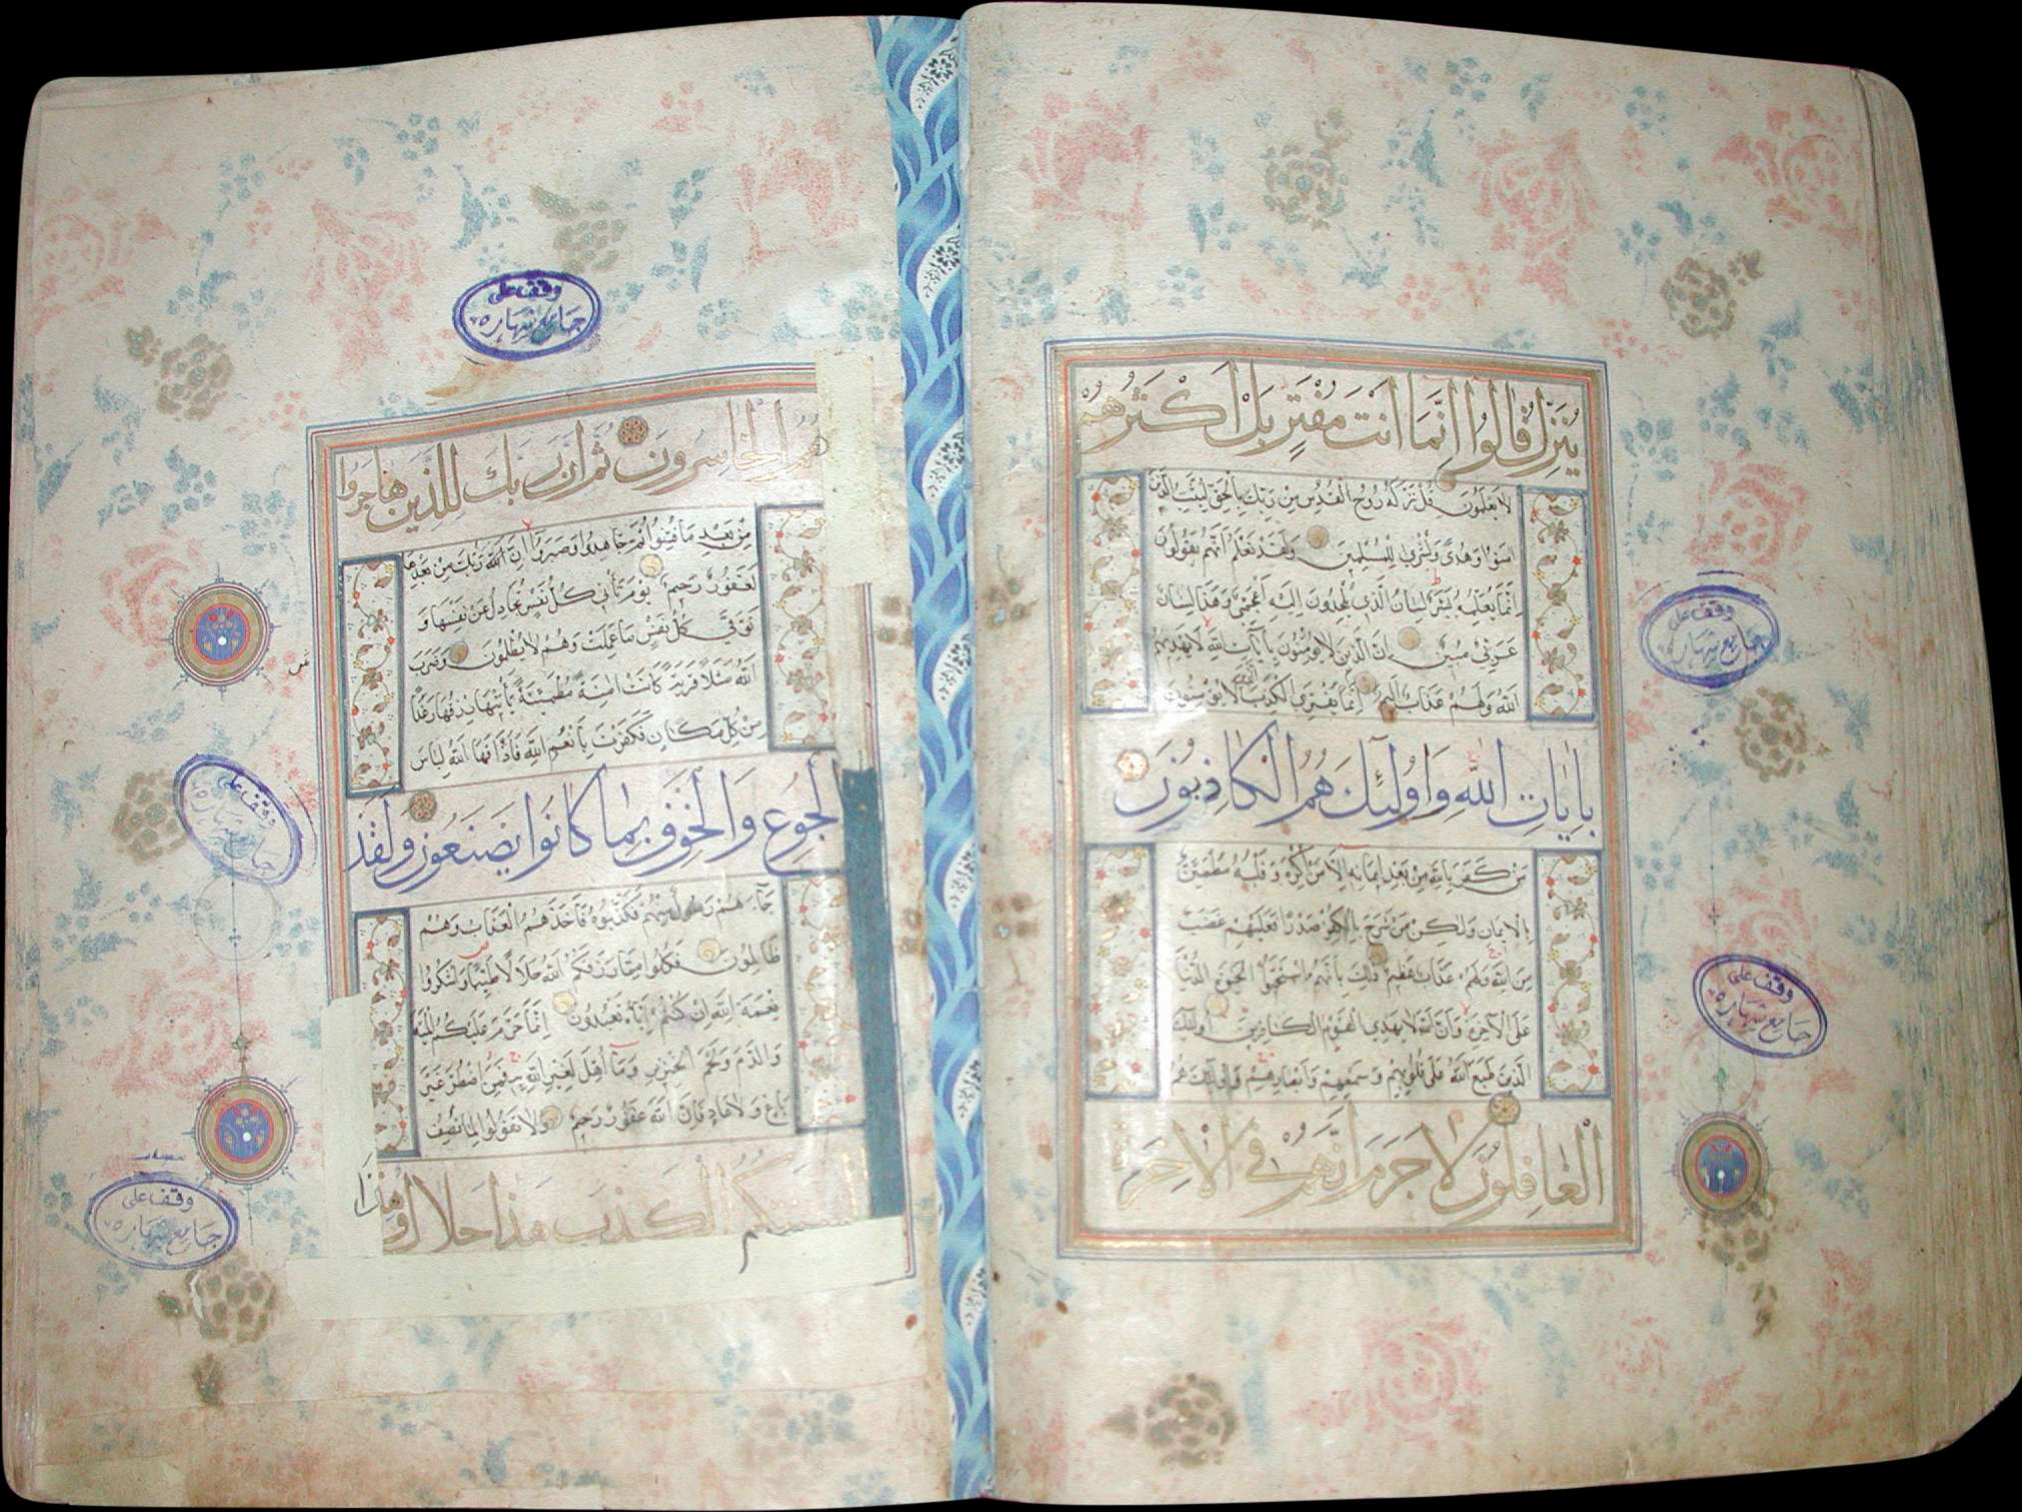 يُنَزِّلُ قَالُوا إِنَّمَا أَنْتَ مُفْتَرٍ بَلْ أَكْثَرُهُمْ
لَا يَعْلَمُونَ قُلْ نَزَّلَهُ رُوحُ الْقُدُسِ مِنْ رَبِّكَ بِالْحَقِّ لِيُثَبِّتَ الَّذِينَ
آمَنُوا وَهُدًى وَبُشْرَى لِلْمُسْلِمِينَ وَلَقَدْ نَعْلَمُ أَنَّهُمْ يَقُولُونَ
إِنَّمَا يُعَلِّمُهُ بَشَرٌ لِسَانُ الَّذِي يُلْحِدُونَ إِلَيْهِ أَعْجَمِيٌّ وَهَذَا لِسَانٌ
عَرَبِيٌّ مُبِينٌ إِنَّ الَّذِينَ لَا يُؤْمِنُونَ بِآيَاتِ اللَّهِ لَا يَهْدِيهِمُ
اللَّهُ وَلَهُمْ عَذَابٌ أَلِيمٌ إِنَّمَا يَفْتَرِي الْكَذِبَ الَّذِينَ لَا يُؤْمِنُونَ
بِآيَاتِ اللَّهِ وَأُولَئِكَ هُمُ الْكَاذِبُونَ
مَنْ كَفَرَ بِاللَّهِ مِنْ بَعْدِ إِيمَانِهِ إِلَّا مَنْ أُكْرِهَ وَقَلْبُهُ مُطْمَئِنٌّ
بِالْإِيمَانِ وَلَكِنْ مَنْ شَرَحَ بِالْكُفْرِ صَدْرًا فَعَلَيْهِمْ غَضَبٌ
مِنَ اللَّهِ وَلَهُمْ عَذَابٌ عَظِيمٌ ذَلِكَ بِأَنَّهُمُ اسْتَحَبُّوا الْحَيَوةَ الدُّنْيَا
عَلَى الْآخِرَةِ وَأَنَّ اللَّهَ لَا يَهْدِي الْقَوْمَ الْكَافِرِينَ أُولَئِكَ
الَّذِينَ طَبَعَ اللَّهُ عَلَى قُلُوبِهِمْ وَسَمْعِهِمْ وَأَبْصَارِهِمْ وَأُولَئِكَ هُمُ
الْغَافِلُونَ لَا جَرَمَ أَنَّهُمْ فِي الْآخِرَةِ
وقف على
جامع شهاره
وقف على
جامع شهاره
وقف على
جامع شهاره
هُمُ الْخَاسِرُونَ ثُمَّ إِنَّ رَبَّكَ لِلَّذِينَ هَاجَرُوا
مِنْ بَعْدِ مَا فُتِنُوا ثُمَّ جَاهَدُوا وَصَبَرُوا إِنَّ رَبَّكَ مِنْ بَعْدِهَا
لَغَفُورٌ رَحِيمٌ يَوْمَ تَأْتِي كُلُّ نَفْسٍ تُجَادِلُ عَنْ نَفْسِهَا وَ
تُوَفَّى كُلُّ نَفْسٍ مَا عَمِلَتْ وَهُمْ لَا يُظْلَمُونَ وَضَرَبَ
اللَّهُ مَثَلًا قَرْيَةً كَانَتْ آمِنَةً مُطْمَئِنَّةً يَأْتِيهَا رِزْقُهَا رَغَدًا
مِنْ كُلِّ مَكَانٍ فَكَفَرَتْ بِأَنْعُمِ اللَّهِ فَأَذَاقَهَا اللَّهُ لِبَاسَ
الْجُوعِ وَالْخَوْفِ بِمَا كَانُوا يَصْنَعُونَ وَلَقَدْ
جَاءَهُمْ رَسُولٌ مِنْهُمْ فَكَذَّبُوهُ فَأَخَذَهُمُ الْعَذَابُ وَهُمْ
ظَالِمُونَ فَكُلُوا مِمَّا رَزَقَكُمُ اللَّهُ حَلَالًا طَيِّبًا وَاشْكُرُوا
نِعْمَةَ اللَّهِ إِنْ كُنْتُمْ إِيَّاهُ تَعْبُدُونَ إِنَّمَا حَرَّمَ عَلَيْكُمُ الْمَيْتَةَ
وَالدَّمَ وَلَحْمَ الْخِنْزِيرِ وَمَا أُهِلَّ لِغَيْرِ اللَّهِ بِهِ فَمَنِ اضْطُرَّ غَيْرَ
بَاغٍ وَلَا عَادٍ فَإِنَّ اللَّهَ غَفُورٌ رَحِيمٌ وَلَا تَقُولُوا لِمَا تَصِفُ
أَلْسِنَتُكُمُ الْكَذِبَ هَذَا حَلَالٌ وَهَذَا
وقف على
جامع شهاره
وقف على
جامع شهاره